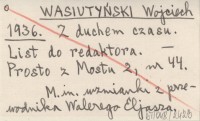 WASIUTYŃSKI Wojciech
1936. Z duchem czasu.
List do redaktora. —
Prosto z Mostu 2, nr 44.
M. in. wzmianki z prze-
wodnika Walerego Eljasza.